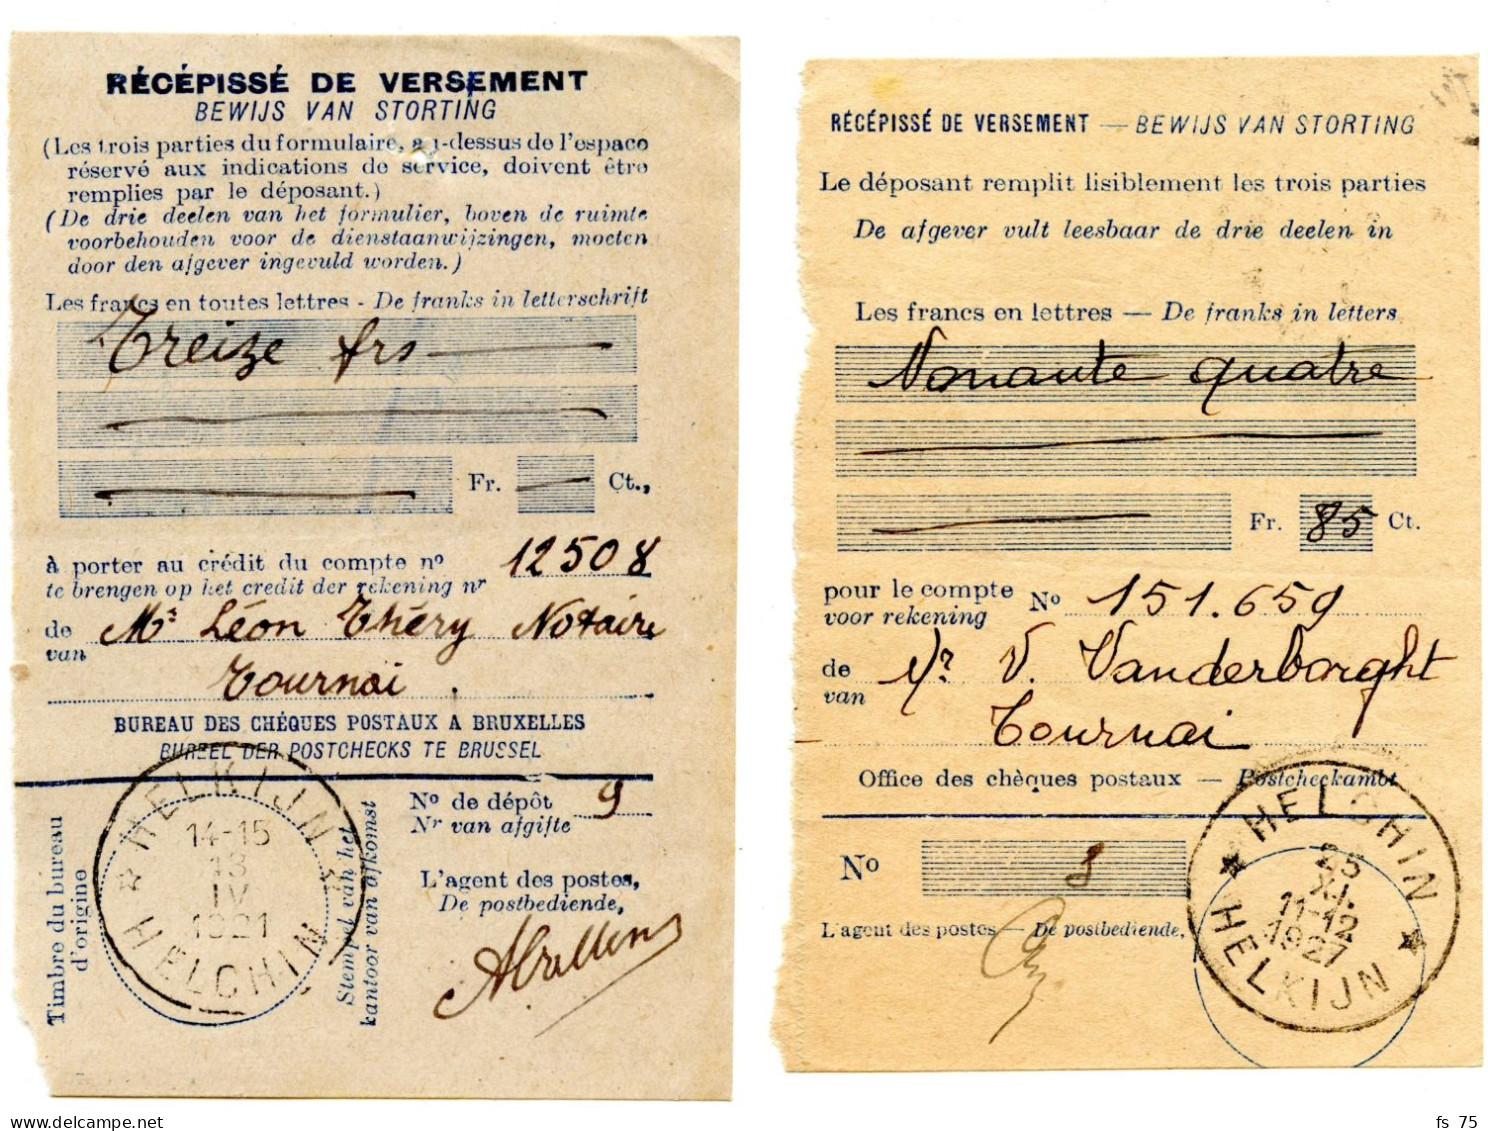 RÉCÉPISSÉ DE VERSEMENT
BEWIJS VAN STORTING
(Les trois parties du formulaire, au-dessus de l'espace
réservé aux indications de service, doivent être
remplies par le déposant.)
(De drie deelen van het formulier, boven de ruimte
voorbehouden voor de dienstaanwijzingen, moeten
door den afgever ingevuld worden.)
Les francs en toutes lettres - De franks in letterschrift
Treize frs
Fr. Ct.,
à porter au crédit du compte nº 12508
te brengen op het credit der rekening nr
de Mr Léon Théry Notaire
van
Tournai .
BUREAU DES CHÉQUES POSTAUX A BRUXELLES
BUREEL DER POSTCHECKS TE BRUSSEL
Timbre du bureau
d'origine
HELKIJN
14-15
13
IV
1921
HELCHIN
Stempel van het
kantoor van afkomst
Nº de dépôt 9
Nr van afgifte
L'agent des postes,
De postbediende,
RÉCÉPISSÉ DE VERSEMENT — BEWIJS VAN STORTING
Le déposant remplit lisiblement les trois parties
De afgever vult leesbaar de drie deelen in
Les francs en lettres — De franks in letters
Nonante quatre
Fr. 85 Ct.
pour le compte Nº 151.659
voor rekening
de Mr V. Vanderborght
van
Tournai
Office des chèques postaux — Postcheckambt
Nº 8
L'agent des postes — De postbediende,
HELCHIN
25
XI.
11-12
1927
HELKIJN
fs 75